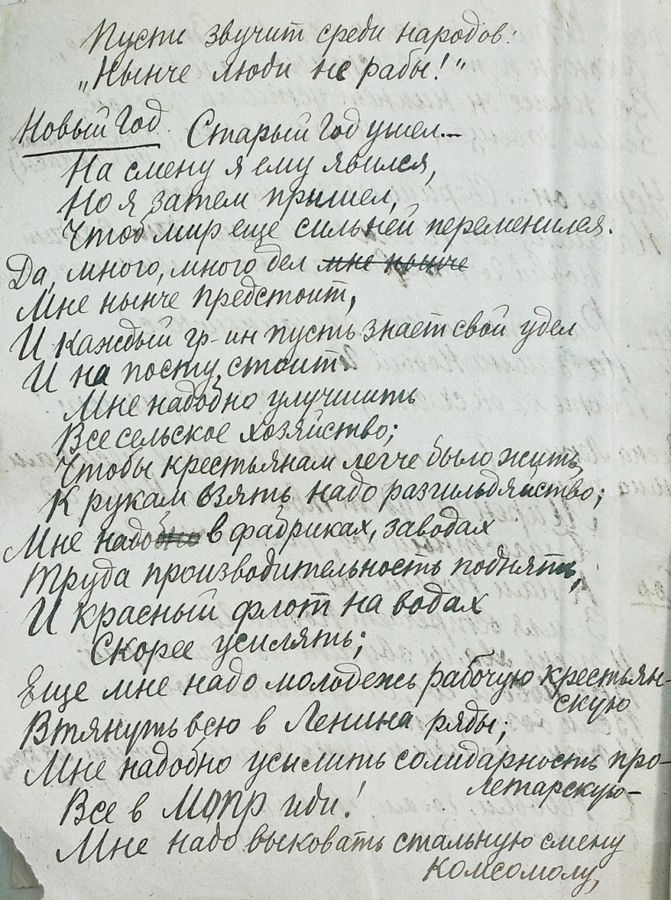 Пусть звучит среди народов:
„Нынче люди не рабы!"
Новый Год. Старый Год ушел...
На смену я ему явился,
Но я затем пришел,
Чтоб мир еще сильней переменился.
Да, много, много дел мне нынче
Мне нынче предстоит,
И каждый гр-ин пусть знает свой удел
И на посту стоит.
Мне надобно улучшить
Все сельское хозяйство;
Чтобы крестьянам легче было жить,
К рукам взять надо разгильдяйство;
Мне надобно в фабриках, заводах
Труда производительность поднять,
И красный флот на водах
Скорее усилять;
Еще мне надо молодежь рабочую крестьян-
скую
Втянуть всю в Ленина ряды;
Мне надобно усилить солидарность про-
летарскую-
Все в Мопр иди!
Мне надо выковать стальную смену
Комсомолу,